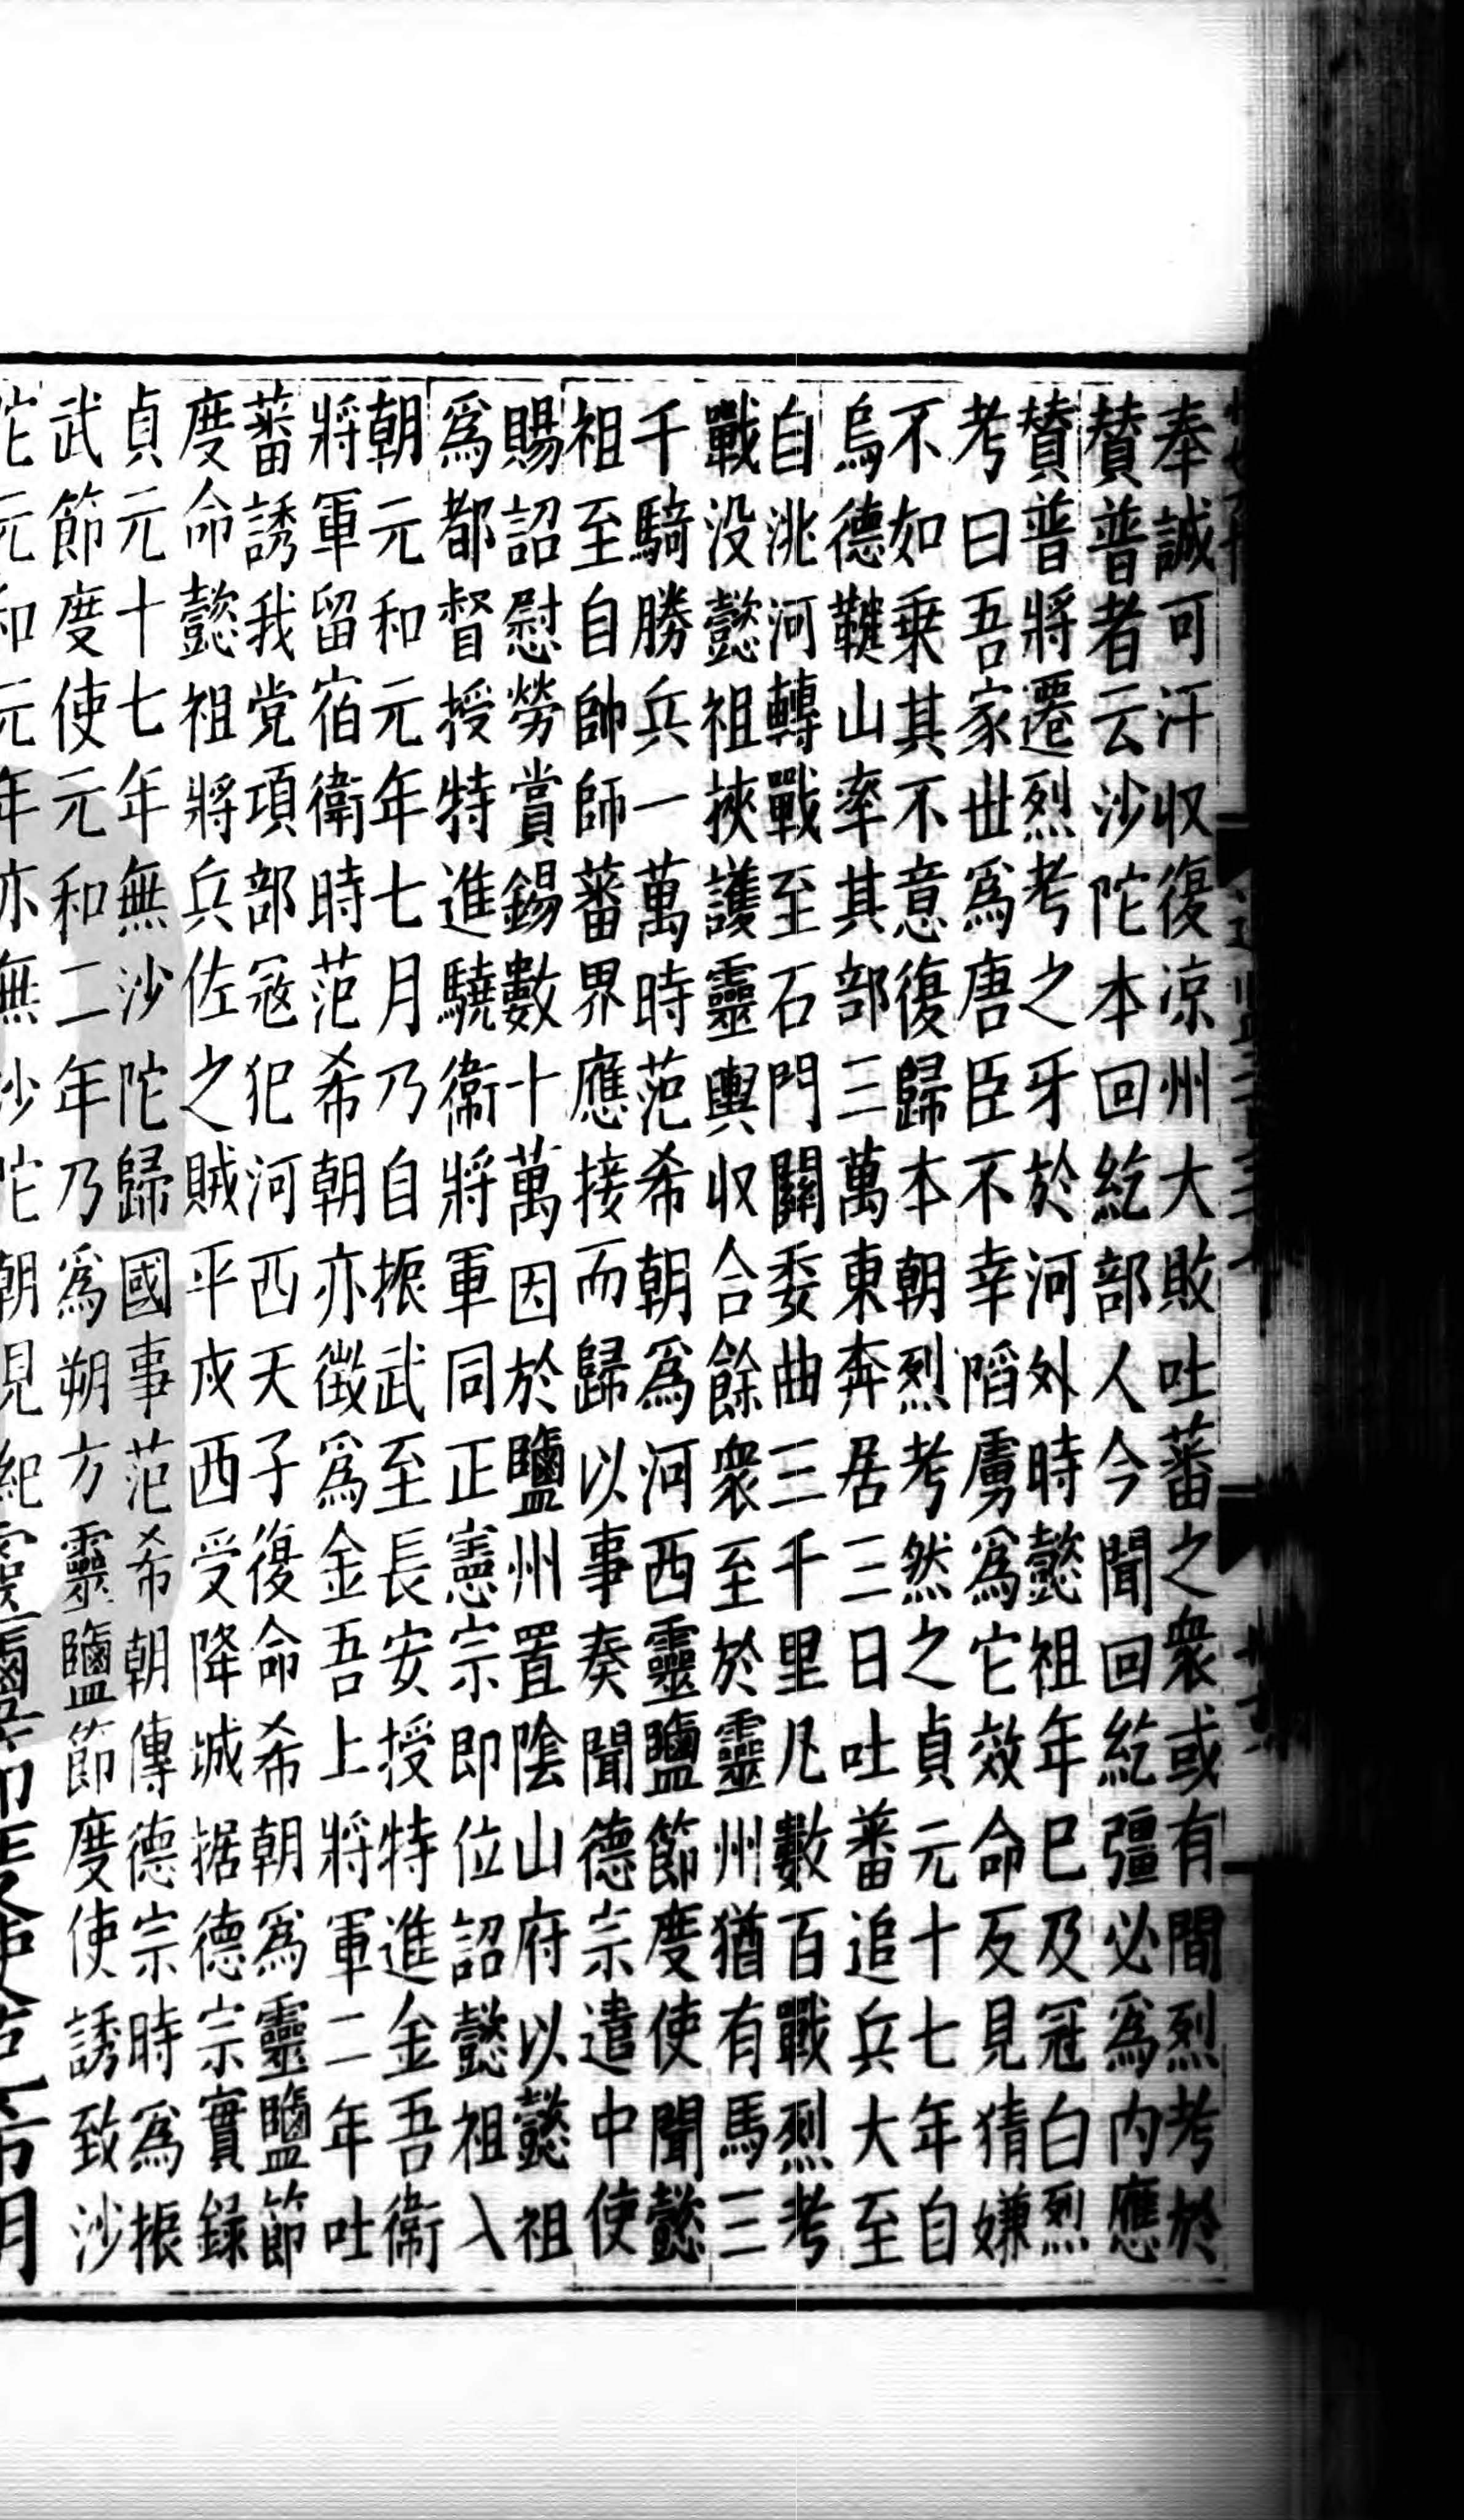 奉誠可汗収復涼州大敗吐蕃之衆或有間烈考於
賛普者云沙陀本回紇部人今聞回紇彊必為内應
賛普將遷烈考之牙於河外時懿祖年已及冠白烈
考曰吾家世為唐臣不幸䧟虜為它效命反見猜嫌
不如乗其不意復歸本朝烈考然之貞元十七年自
烏德鞬山率其部三萬東奔居三日吐蕃追兵大至
自洮河轉戰至石門關委曲三千里凡數百戰烈考
戰没懿祖挾護靈輿収合餘衆至於靈州猶有馬三
千騎勝兵一萬時范希朝為河西靈鹽節度使聞懿
祖至自帥師蕃界應接而歸以事奏聞德宗遣中使
賜詔慰勞賞錫數十萬因於鹽州置隂山府以懿祖
為都督授特進驍衞將軍同正憲宗即位詔懿祖入
朝元和元年七月乃自振武至長安授特進金吾衞
將軍留宿衛時范希朝亦徴為金吾上將軍二年吐
蕃誘我党項部寇犯河西天子復命希朝為靈鹽節
度命懿祖將兵佐之賊平戍西受降城据德宗實録
貞元十七年無沙陀歸國事范希朝傳德宗時為振
武節度使元和二年乃為朔方靈鹽節度使誘致沙
陀元和元年亦無沙陀朝見紀